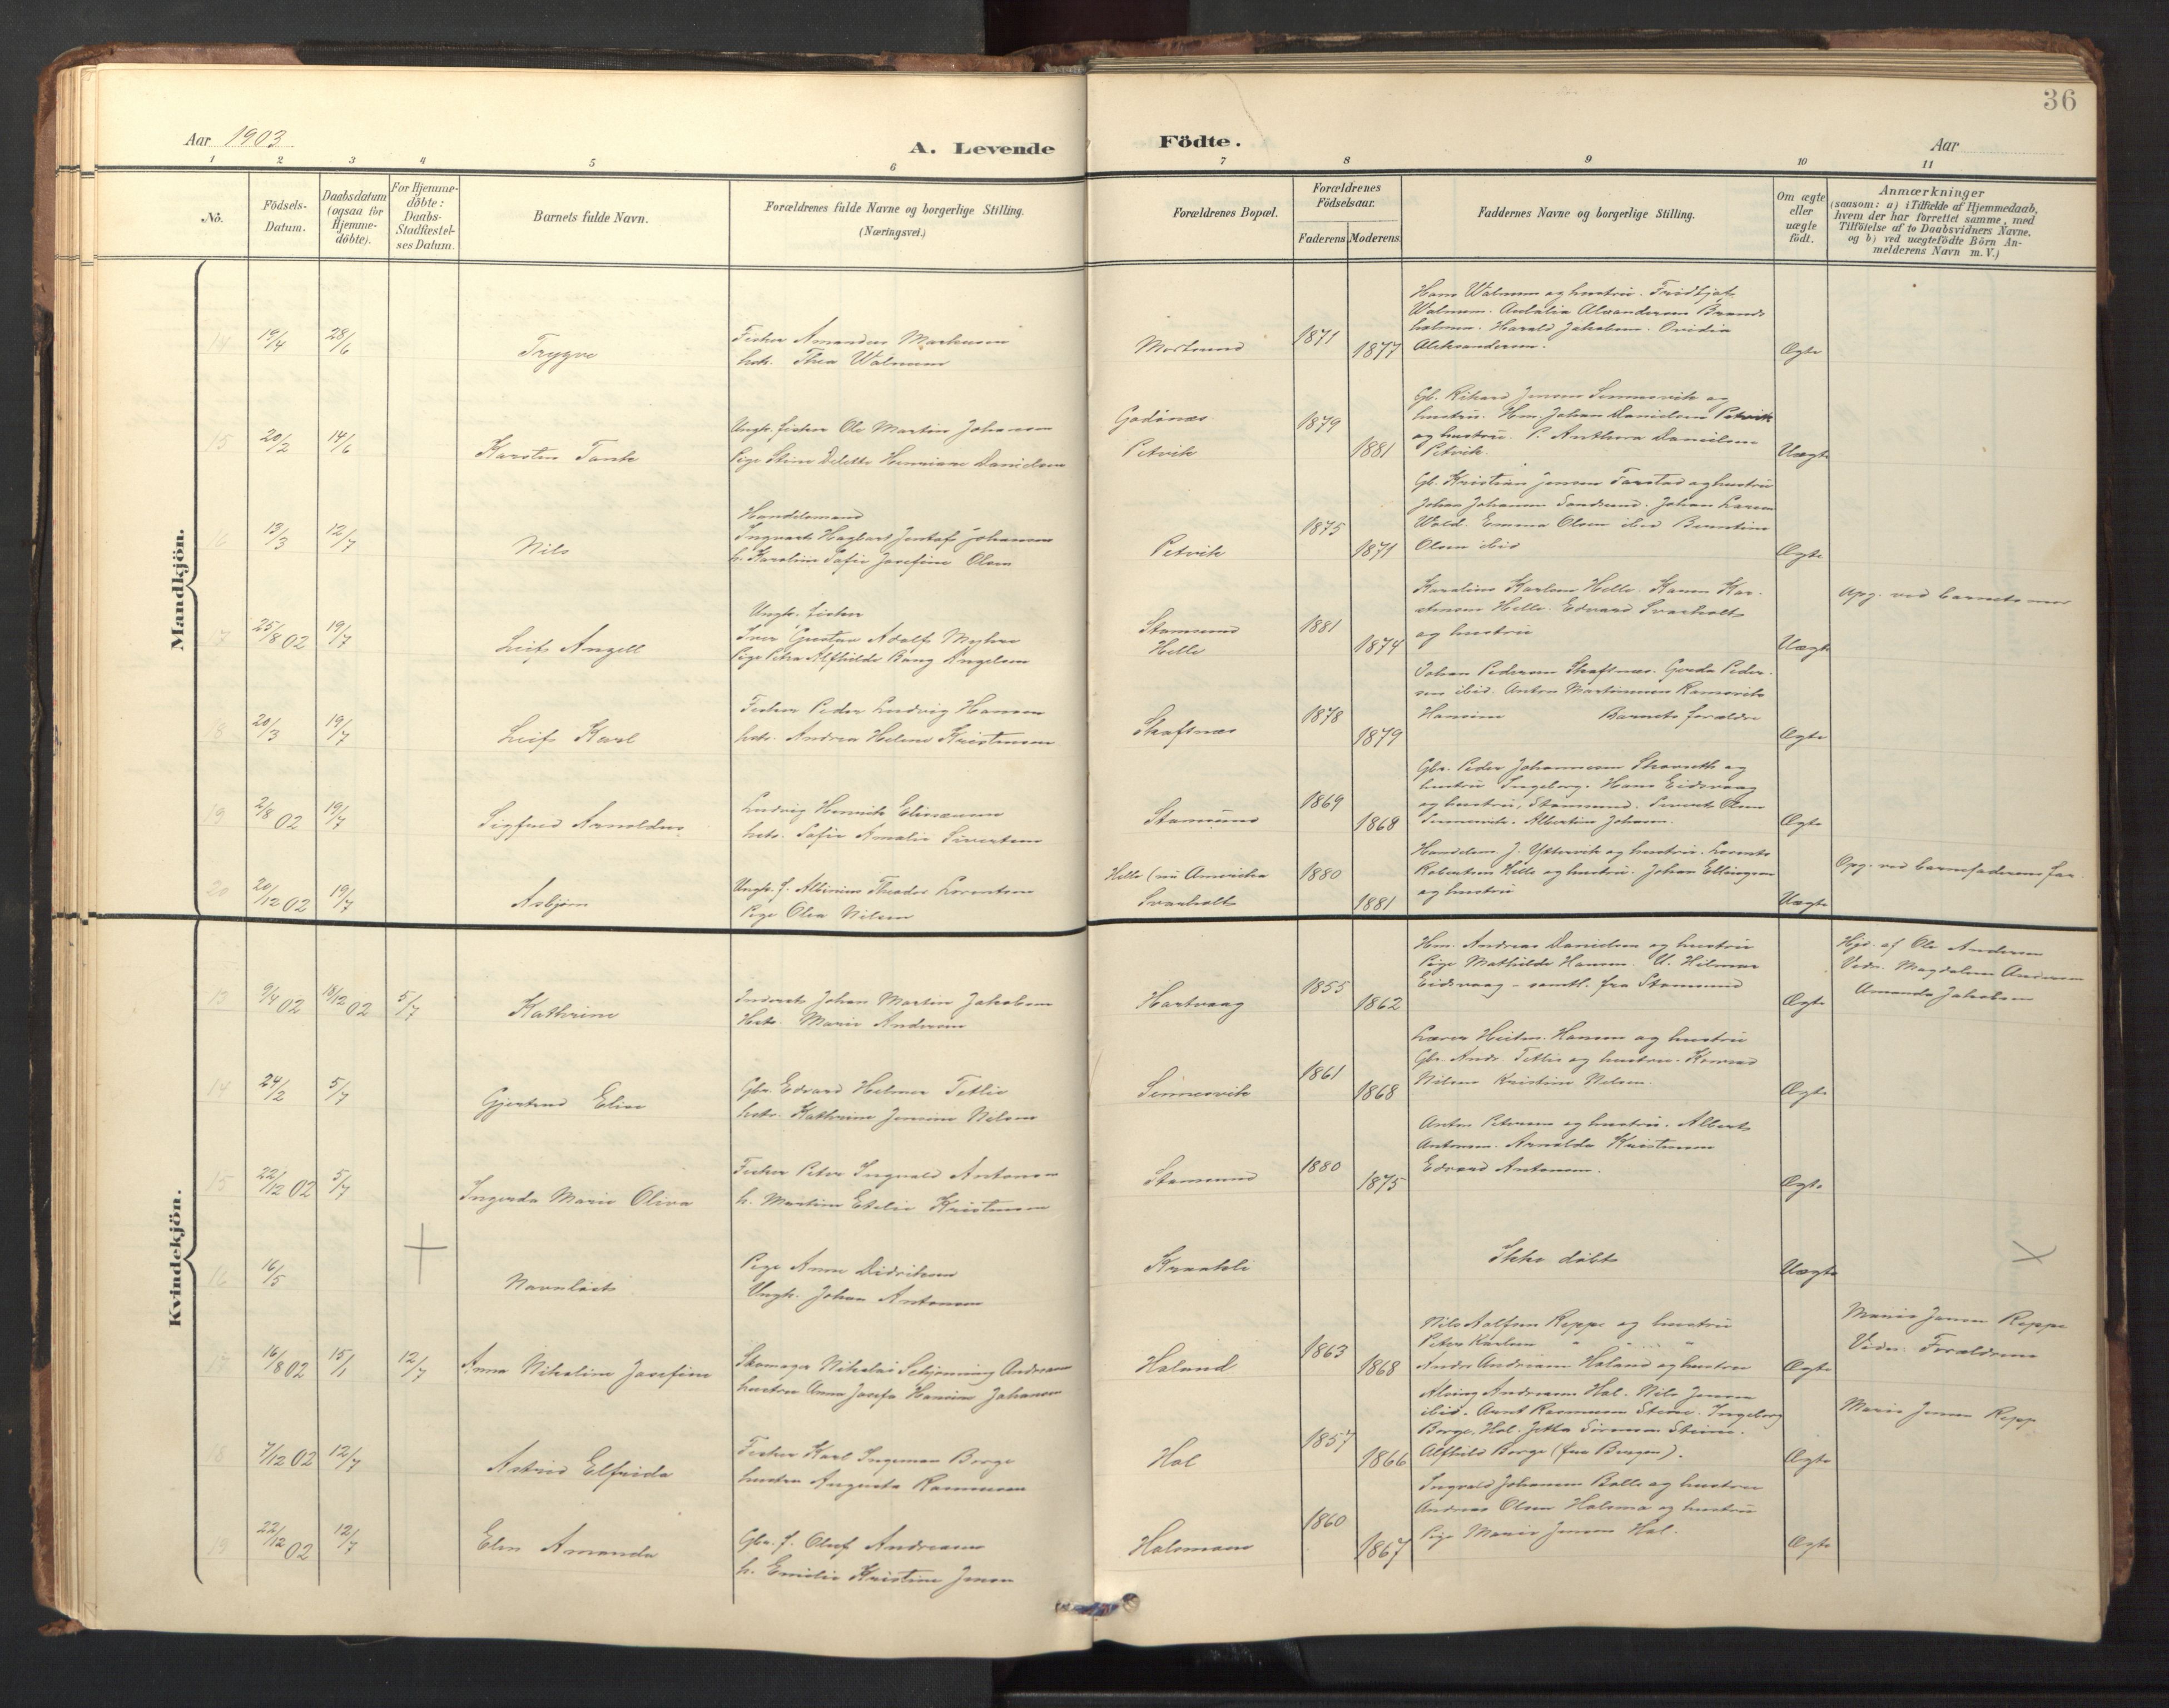 36
Aar 1903
A. Levende Födte.
Aar
1 2 3 4 5 6 7 8 9 10 11
No.
Födsels-
Datum.
Daabsdatum
(ogsaa for
Hjemme-
döbte).
For Hjemme-
döbte:
Daabs-
Stadfæstel-
ses Datum.
Barnets fulde Navn.
Forældrenes fulde Navne og borgerlige Stilling.
(Næringsvei.)
Forældrenes Bopæl.
Forældrenes
Födselsaar.
Faderens.
Moderens.
Faddernes Navne og borgerlige Stilling.
Om ægte
eller
uægte
födt.
Anmærkninger
(saasom: a) i Tilfælde af Hjemmedaab,
hvem der har forrettet samme, med
Tilföielse af to Daabsvidners Navne,
og b) ved uægtefödte Börn An-
melderens Navn m. V.)
Mandkjön.
14 19/4 28/6 Trygve
Fisker Amandus Markusen
hstr. Thea Walnum
Mortsund 1871 1877
Hans Walnum og hustru. Fridtjof
Walnum. Alexandersen
Harald Jakobsen. Ovidia
Aleksandersen.
Ægte
15 20/2 14/6 Karsten Tank
Ungk. fisker Ole Martin Johansen
Pige Stine Delette Henriane Danielsen
Godönes
Petvik
1879 1881
Gb. Rikard Jensen Sennesvik og
hustru. Hm. Johan Danielsen Petvik
og hustru. P. Anthora Danielsen
Petvik.
Uægte
16 13/3 12/7 Nils
Handelsmand
Ingvart Hagbart Gustaf Johansen
h. Karoline Sofie Josefine Olsen
Petvik 1875 1871
Gb. Kristian Jensen Farstad og hustru
Johan Johansen Sandsund. Johan Larsen
Wold. Emma Olsen ibid Berntine
Olsen ibid
Ægte
17 25/8 02 19/7 Leif Angell
Ungk. fisker
Iver Gustav Adolf Myhre
Pige Petra Alfhilde Bang Angelsen
Stamsund
Helle
1881 1874
Karolius Karlsen Helle. Karen Kar-
Helle. Edvard Svarholt
og hustru
Uægte
Opg. ved barnets mor
18 20/3 19/7 Leif Karl
Fisker Peder Ludvig Hansen
hstr. Andrea Helene Kristensen
Skaftnes 1878 1879
Johan Pedersen Skaftnes. Gerda Peder-
sen ibid. Anton Martinussen Ramsvik
Hansine Barnets forældre
Ægte
19 2/8 02 19/7 Sigfred Arnoldus
Ludvig Henrik Eliassen
hstr. Sofie Amalie Sivertsen
Stamsund 1869 1868
Gbr. Peder Johannesen og
hustru Ingeborg. Hans Eidsvaag
og hustru, Stamsund. Sivert Olsen
Sennesvik. Albertine Johansen.
Ægte
20 20/12 02 19/7 Asbjörn
Ungk. f. Albinius Theodor Lorentsen
Pige Olea Nilsen
Helle (nu Amerika
Svarholt
1880 1881
Handelsm. J. Yttervik og hustru. Lorents
Robertsen Helle og hustru. Johan Ellingsen
og hustru
Uægte
Opg. ved barnefaderens far
Kvindekjön.
13 9/4 02 18/12 02 5/7 Kathrine
Inderst Johan Martin Jakobsen
Hstr. Marie Andersen
Hartvaag 1855 1862
Hm. Andreas Danielsen og hustru
Pige Mathilde Hansen. U. Hilmar
Eidsvaag – samtl. fra Stamsund
Ægte
Hjd. af Ole Andersen
Vidn. Magdalene Andersen
Amanda Jakobsen
14 24/2 5/7 Gjertrud Elise
Gbr. Edvard Helmer Tetlie
hstr. Kathrine Jensine Nilsen
Sennesvik 1861 1868
Lærer Hansen og hustru
Gbr. Andr. Tetlie og hustru. Konrad
Nilsen Kristine Nilsen.
Ægte
15 22/12 02 5/7 Ingerda Marie Oliva
Fisker Peter Ingvald Antonsen
h. Martine Etelie Kristensen
Stamsund 1880 1875
Anton Petersen og hustru. Albert
Antonsen. Arnolda Kristensen
Edvard Antonsen.
Ægte
16 16/5 Navnlöst
Pige Anna Didriksen
Ungk. Johan Antonsen
Kraakli
Ikke döbt
Uægte
17 16/8 02 15/1 12/7 Anna Nikoline Josefine
Skomager Nikolai Schjönning Andreasen
hustru Anna Josefa Hansine Johansen
Holand 1863 1868
Nils Adolfsen Reppe og hustru
Peter Karlsen " "
Andr. Andreasen Holand og hustru
Ægte
Marie Jensen Reppe
Vidn. Forældrene
18 7/12 02 12/7 Astrid Elfrida
Fisker Karl Ingeman Borge
hustru Augusta Rasmussen
Hol 1857 1866
Andreasen Hol. Nils Jensen
ibid. Arnt Rasmussen Steine. Ingeborg
Borge, Hol. Jetta Sörensen Steine.
Alfhild Borge (fra Bergen).
Ægte
Marie Jensen Repp
19 22/12 02 12/7 Elen Amanda
Gbr. f. Oluf Andreasen
h. Emilie Kristine Jensen
Holsmoen 1860 1867
Ingvald Johansen Balle og hustru
Andreas Olsen Holsmo og hustru
Pige Marie Jensen Hol.
Ægte